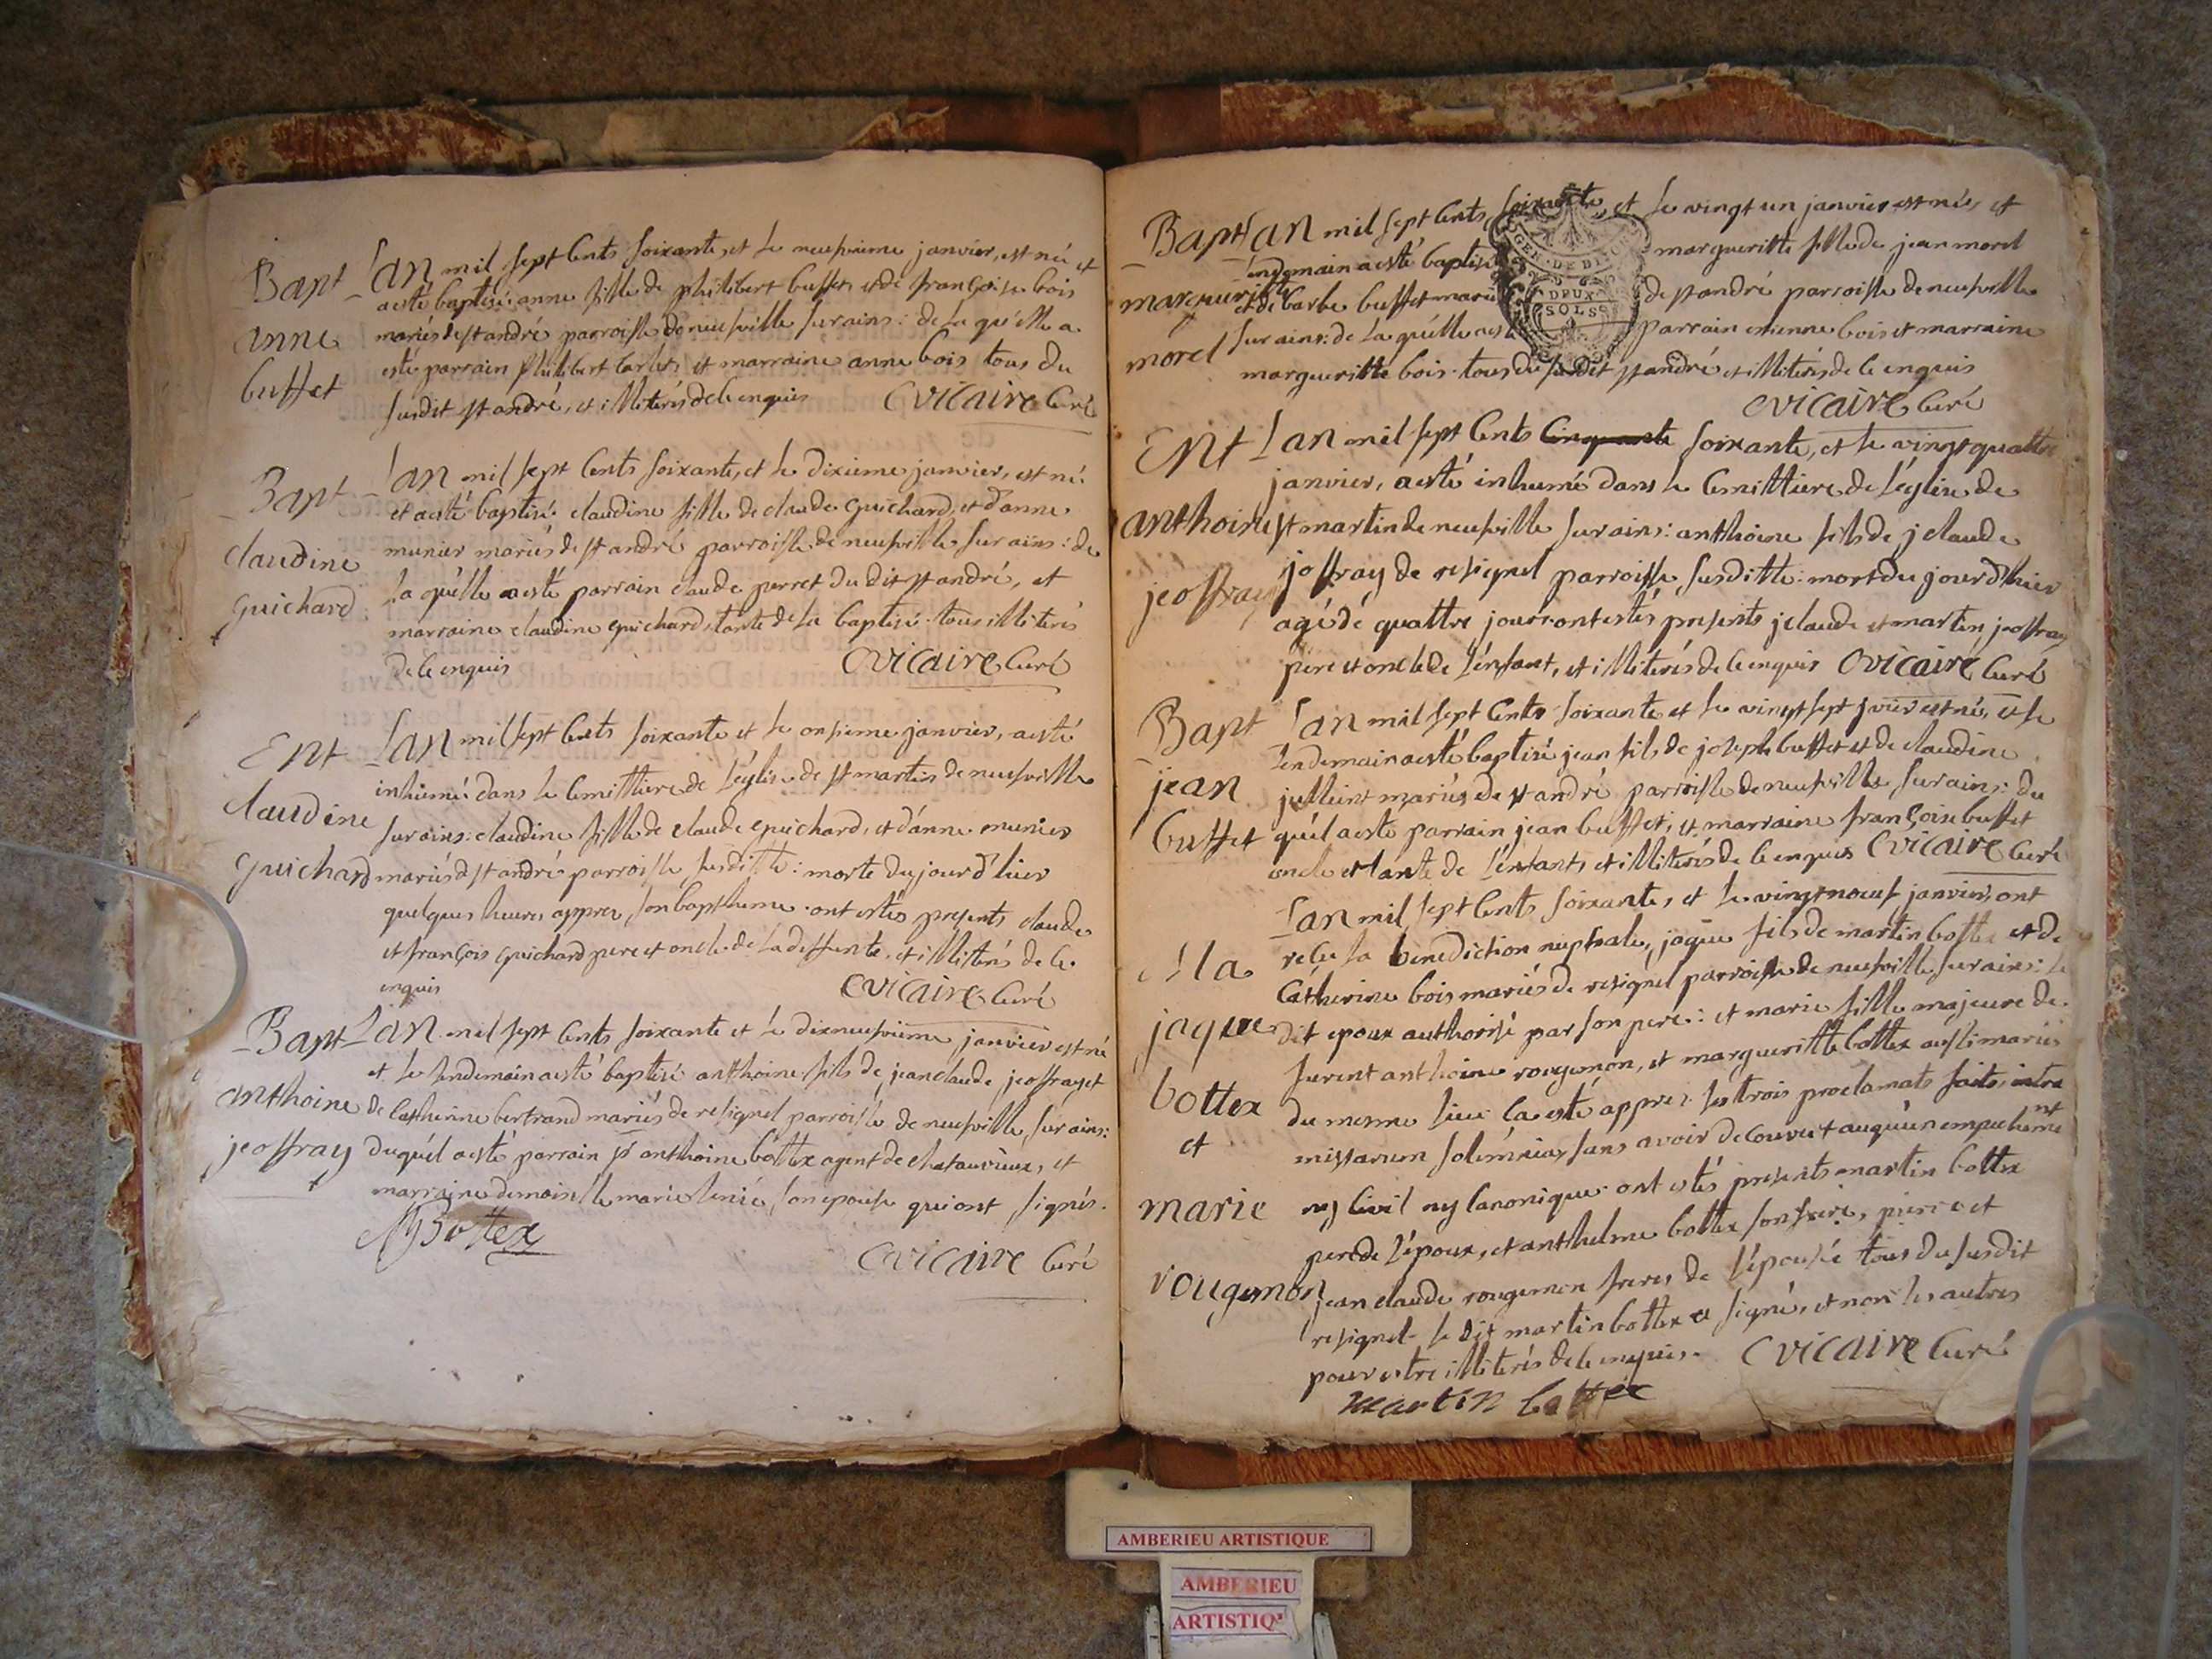 Bapt
anne
buffet
Lan mil sept cents soixante, et le neufvieme janvier, est née et
aesté baptisé anne fille de philibert buffet et de françoise bois
mariés de st andré parroisse de neufville surains: de la quélle a
esté parrain philibert et marraine anne bois tous du
susdit st andré, et illiterés de ce enquis Cvicaire Curé
Bapt
claudine
guichard
Lan mil sept cents soixante, et le dixieme janvier, est née
et aesté baptisé claudine fille de claude guichard, et d'anne
munier mariés de st andré parroisse de neufville surains: de
la quélle aesté parrain claude perret du dit st andré, et
marraine claudine guichard, tante de la baptisé tous illiterés
de ce enquis Cvicaire Curé
Ent
claudine
guichard
Lan mil sept cents soixante et le onsieme janvier, aesté
inhumé dans le Cemittiere de léglise de st martin de neufville
surains: claudine fille de claude guichard, et d'anne munier
mariés d st andré parroisse susditte: morte dujourd'hier
quelques heures appres son baptheme. ont estés presents claude
et françois guichard pere et oncle de la deffunte, et illiterés de ce
enquis Cvicaire Curé
Bapt
anthoine
jeoffray
Lan mil sept cents soixante et le dixneufvieme janvier est né
et le lendemain aesté baptisé anthoine fils de jean claude jeoffray et
de Catherine bertrand mariés de resignel parroisse de neufville surains:
duquél aesté parrain sr anthoine bottex agent de chatauvieux, et
marraine demoiselle marie son epouse qui ont signés.
Bottex
Cvicaire Curé
Bapt
margueritte
morel
Lan mil sept cents soixante, et le vingt un janvier est née et
lendemain aesté baptisé margueritte fille de jean morel
et de barbe buffet marié de st andré parroisse de neufville
surains: de la quélle aesté parrain etienne bois et marraine
margueritte bois tous du susdit st andré et illiterés de ce enquis
Cvicaire Curé
GEN. DE
DEUX
SOLS
Ent
anthoine
jeoffray
Lan mil sept cents Cinquante soixante, et le vingt quattre
janvier, aesté inhumé dans le Cemittiere de léglise de
st martin de neufville surains: anthoine fils de j claude
joffray de resignel parroisse susditte: mort du jourd'hier
agé de quattre jours ont estés presents j claude et martin jeoffray
pere et oncle de lénfant, et illiterés de ce enquis Cvicaire Curé
Bapt
jean
buffet
Lan mil sept cents soixante et le vingt sept jvier est né, et le
lendemain aesté baptisé jean fils de joseph buffet et de claudine
mariés de st andré parroisse de neufville surains: du
quél aesté parrain jean buffet, et marraine françoise buffet
oncle et tante de lénfant, et illiterés de ce enquis Cvicaire Curé
Ma
jaque
bottex
et
marie
rougemon
Lan mil sept cents soixante, et le vingt noeuf janvier, ont
reçu la benediction nuptiale, jaque fils de martin bottex et de
Catherine bois mariés de resignel parroisse de neufville surains: le
dit epoux authorisé par son pere: et marie fille majeure de
furent anthoine rougemon, et margueritte bottex aussi mariés
du mesme lieu Ca esté appres les trois proclamats faits intra
missarum solemnia, sans avoir decouvert auqu'un empechemnt
ny Civil ny Canonique: ont estés presents martin bottex
pere de lépoux, et anthelme bottex son frere, pierre et
jean claude rougemon freres de lépousé tous du susdit
resignel le dit martin bottex a signé, et non les autres
pour estre illiterés de ce enquis. Cvicaire Curé
martin bottex
AMBERIEU ARTISTIQUE
AMBERIEU
ARTISTIQ